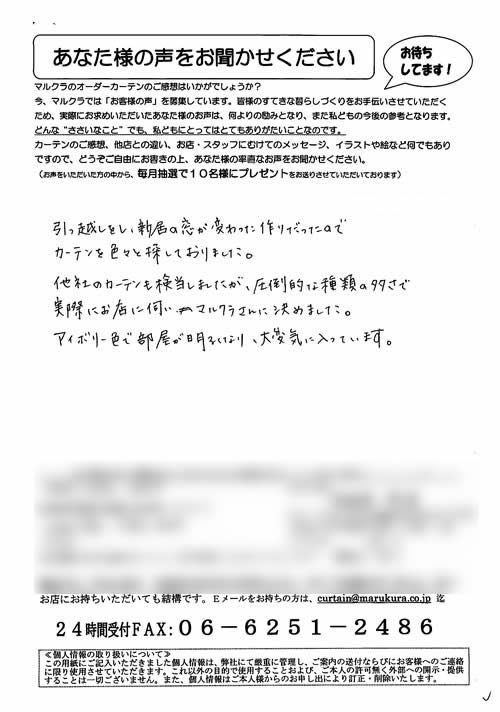 あなた様の声をお聞かせください
お待ち
してます！
マルクラのオーダーカーテンのご感想はいかがでしょうか？
今、マルクラでは「お客様の声」を募集しています。皆様のすてきな暮らしづくりをお手伝いさせていただく
ため、実際にお求めいただいたあなた様のお声は、何よりの励みとなり、また私どもの今後の参考となります。
どんな“ささいなこと”でも、私どもにとってはとてもありがたいことなのです。
カーテンのご感想、他店との違い、お店・スタッフにむけてのメッセージ、イラストや絵など何でもあり
ですので、どうぞご自由にお書きの上、あなた様の率直なお声をお聞かせください。
（お声をいただいた方の中から、毎月抽選で１０名様にプレゼントをお送りさせていただいております）
引っ越しをし、新居の窓が変わった作りだったので
カーテンを色々と探しておりました。
他社のカーテンも検当しましたが、圧倒的な種類の多さで
実際にお店に伺い マルクラさんに決めました。
アイボリー色で部屋が明るくなり、大変気に入っています。
お店にお持ちいただいても結構です。Ｅメールをお持ちの方は、curtain@marukura.co.jp 迄
２４時間受付ＦＡＸ：０６－６２５１－２４８６
≪個人情報の取り扱いについて≫
この用紙にご記入いただきました個人情報は、弊社にて厳重に管理し、ご案内の送付ならびにお客様へのご連絡
に限り使用させていただきます。これ以外の目的で使用することおよび、ご本人の許可無く外部への開示・提供
することは一切ございません。また、個人情報はご本人様からのお申し出により訂正・削除いたします。